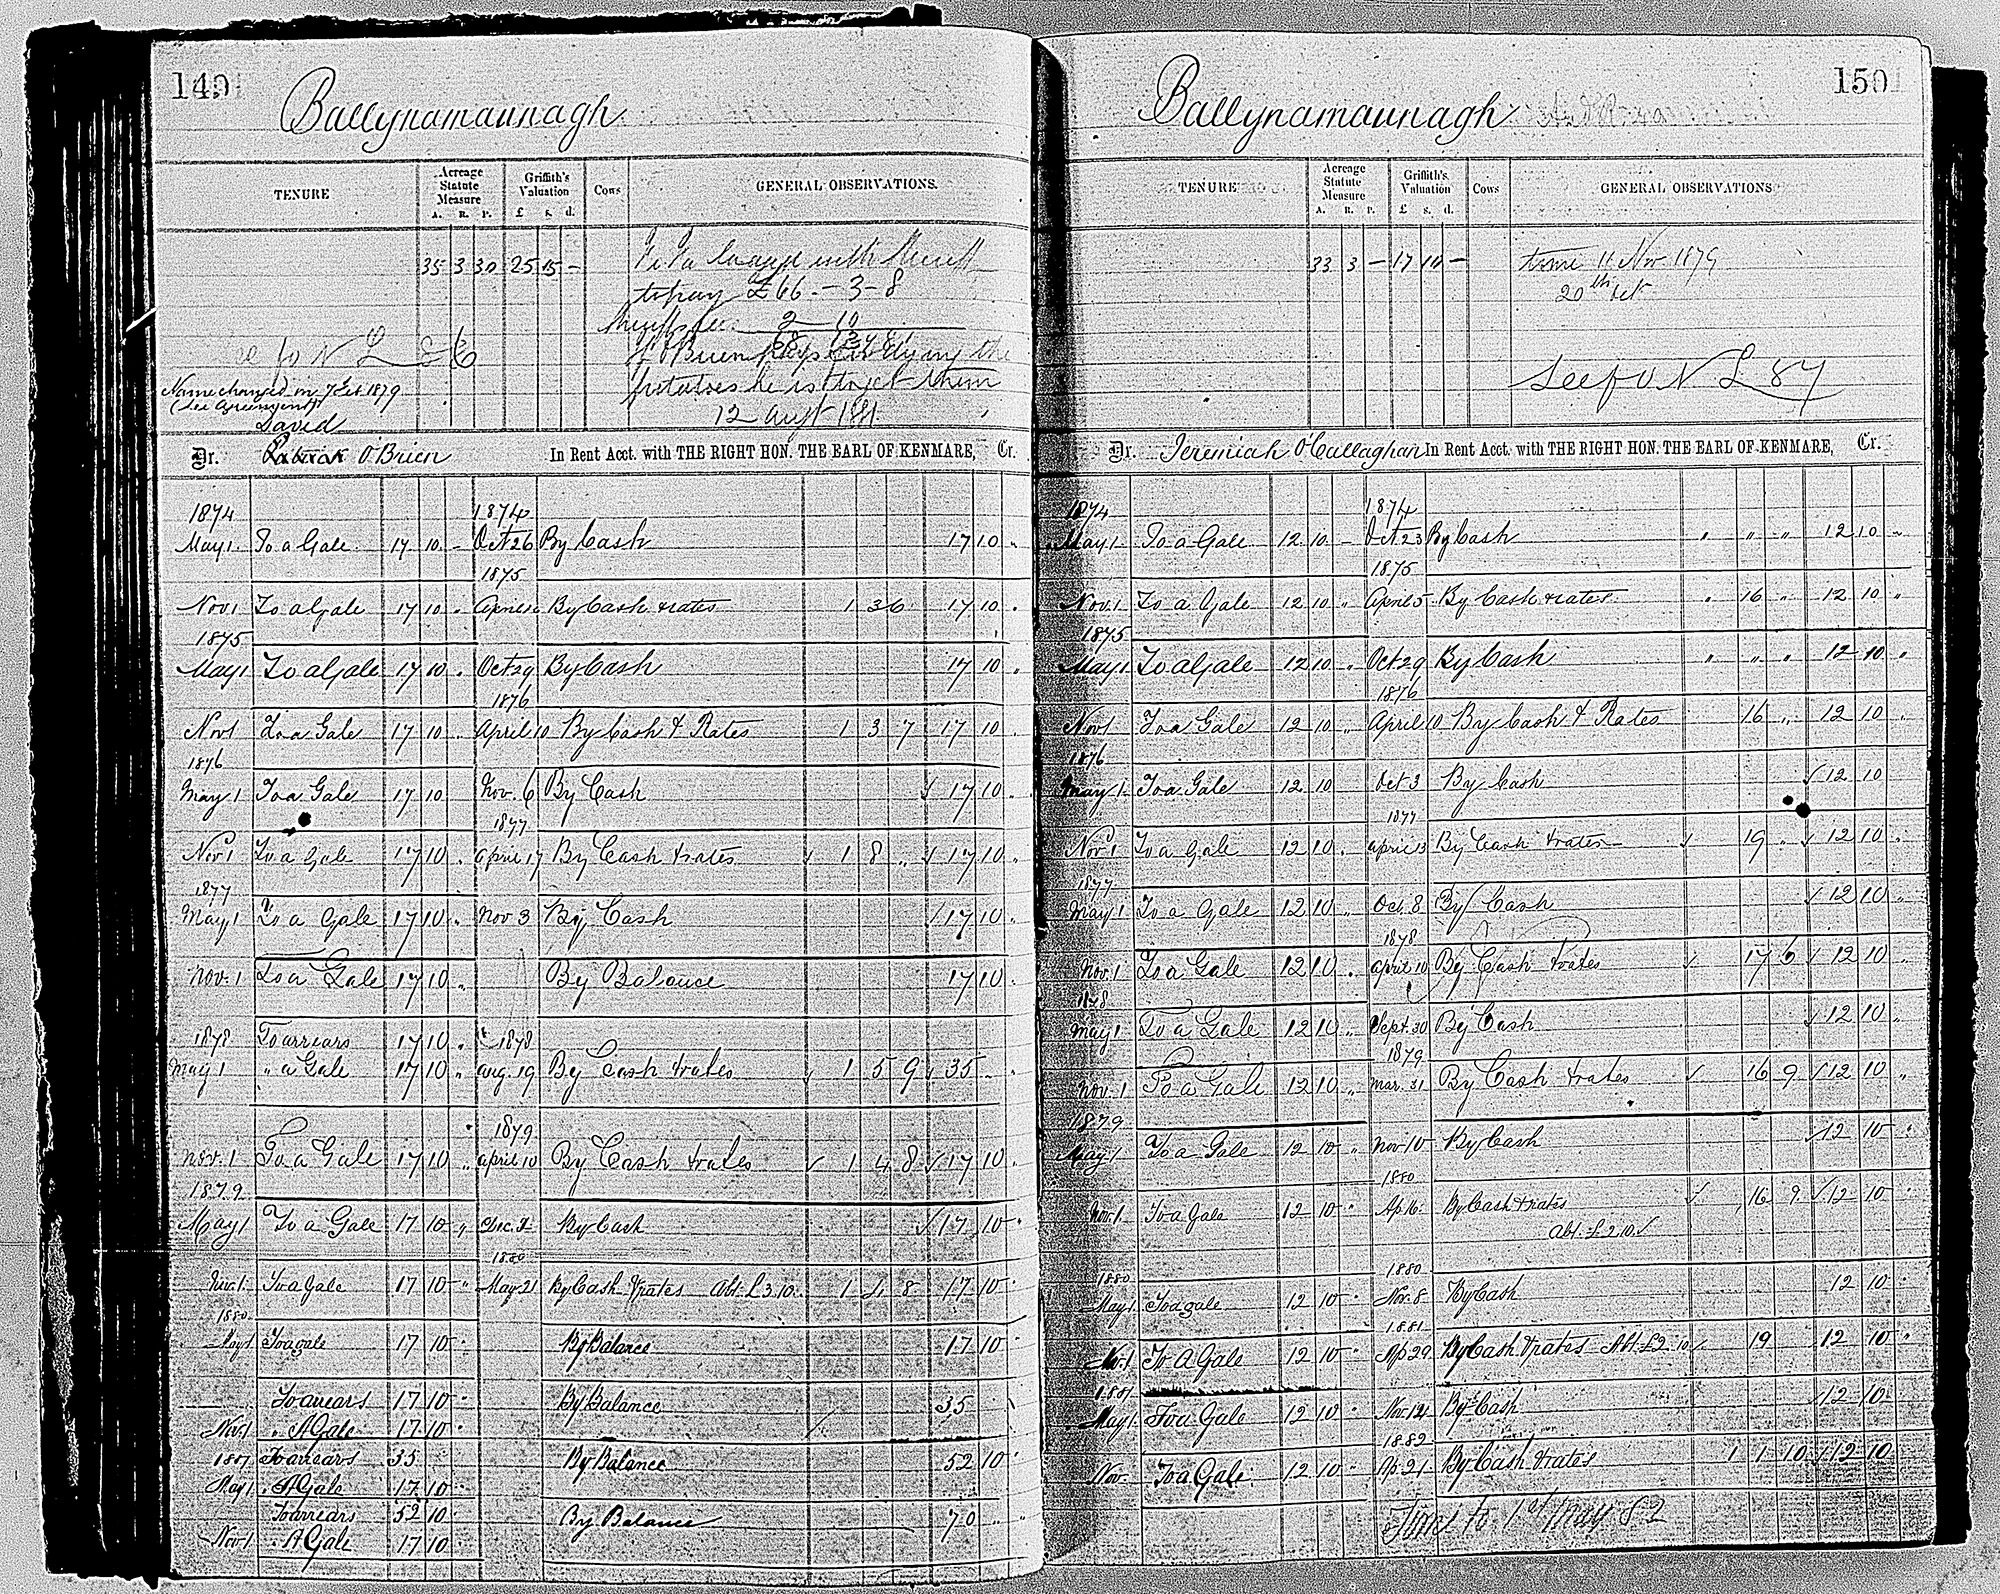 149
Ballynamaunagh
TENURE
Acreage Statute Measure
A. R. P.
Griffith's Valuation
£ s. d.
Cows
GENERAL OBSERVATIONS.
35 3 30 25 15 -
to pay £66 - 3 - 8
2 - 10
O'Brien pays
potatoes he is to get them
12 augt 1881
Name changed on 7 1879
(See Agreement)
David
Dr. Patrick O'Brien In Rent Acct. with THE RIGHT HON. THE EARL OF KENMARE, Cr.
1874 1874
May 1 To a Gale 17 10 - Oct 26 By Cash 17 10 "
1875
Nov 1 To a Gale 17 10 " April By Cash & rates 1 3 6 17 10 "
1875
May 1 To a Gale 17 10 " Oct 29 By Cash 17 10 "
1876
Nov 1 To a Gale 17 10 " April 10 By Cash & Rates 1 3 7 17 10 "
1876
May 1 To a Gale 17 10 Nov. 6 By Cash √ 17 10 "
1877
Nov 1 To a Gale 17 10 " April 17 By Cash & rates √ 1 8 " √ 17 10 "
1877
May 1 To a Gale 17 10 " Nov 3 By Cash √ 17 10 "
Nov. 1 To a Gale 17 10 " By Balance 17 10
1878 To arriars 17 10 " 1878
May 1 " a Gale 17 10 " Aug. 19 By Cash & rates √ 1 5 9 √ 35 "
1879
Nov. 1 To a Gale 17 10 " April 10 By Cash & rates √ 1 4 8 √ 17 10 "
1879
May 1 To a Gale 17 10 " Dec. By Cash √ 17 10 "
1880
Nov. 1 To a Gale 17 10 " May 21 By Cash & rates Abt. £3.10 1 4 8 17 10 "
1880
May 1 To a gale 17 10 " By Balance 17 10 "
To arriars 17 10 " By Balance 35
Nov. 1 " A Gale 17 10 "
1881 To arriars 35 By Balance 52 10 "
May 1 " A Gale 17 10 "
To arriars 52 10 By Balance 70 " "
Nov 1 " A Gale 17 10
150
Ballynamaunagh
TENURE
Acreage Statute Measure
A. R. P.
Griffith's Valuation
£ s. d.
Cows
GENERAL OBSERVATIONS
33 3 - 17 10 -
time 11 Nov 1879
20th Oct
See fo N L 87
Dr. Jeremiah O'Callaghan In Rent Acct. with THE RIGHT HON. THE EARL OF KENMARE, Cr.
1874 1874
May 1 To a Gale 12 10 - Oct 23 By Cash " " " 12 10 "
1875
Nov. 1 To a Gale 12 10 " April 5 By Cash & rates " 16 " 12 10 "
1875
May 1 To a Gale 12 10 " Oct 29 By Cash " " " 12 10 "
1876
Nov 1 To a Gale 12 10 " April 10 By Cash & Rates 16 " 12 10 "
1876
May 1 To a Gale 12 10 Oct 3 By Cash √ 12 10
1877
Nov 1 To a Gale 12 10 " April 13 By Cash & rates √ 19 " √ 12 10 "
1877
May 1 To a Gale 12 10 " Oct. 8 By Cash √ 12 10 "
1878
Nov. 1 To a Gale 12 10 " April 10 By Cash & rates √ 17 6 √ 12 10 "
1878
May 1 To a Gale 12 10 " Sept. 30 By Cash √ 12 10 "
1879
Nov. 1 To a Gale 12 10 " Mar. 31 By Cash & rates √ 16 9 √ 12 10 "
1879
May 1 To a Gale 12 10 " Nov 10 By Cash √ 12 10 "
1880
Nov. 1 To a Gale 12 10 " Ap 16 By Cash & rates √ 16 9 √ 12 10 "
Abt. £2.10 √
1880 1880
May 1 To a gale 12 10 " Nov. 8 By Cash 12 10 "
1881
Nov. 1 To A Gale 12 10 " Ap 29 By Cash & rates Abt. £2.10 √ 19 12 10 "
1881
May 1 To a Gale 12 10 " Nov. 14 By Cash √ 12 10
1882
Nov. To a Gale 12 10 " Ap 21 By Cash & rates 1 1 10 √ 12 10
Time to 1st May 82